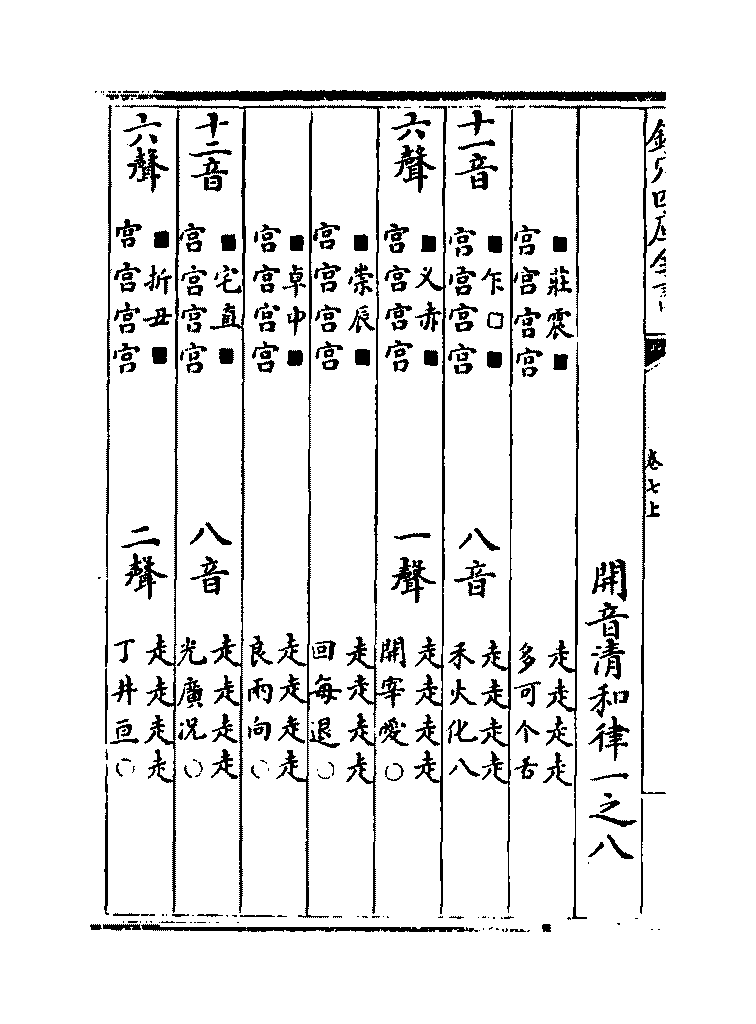 欽定四庫全書
卷七上
開音清和律一之八
■莊震■
宮宮宮宮
走走走走
多可个舌
十一音
■乍□■
宮宮宮宮
八音
走走走走
禾火化八
六聲
■叉赤■
宮宮宮宮
一聲
走走走走
開宰愛○
■崇辰■
宮宮宮宮
走走走走
回每退○
■卓中■
宮宮宮宮
走走走走
良兩向○
十二音
■宅直■
宮宮宮宮
八音
走走走走
光廣況○
六聲
■折丑■
宮宮宮宮
二聲
走走走走
丁井亘○